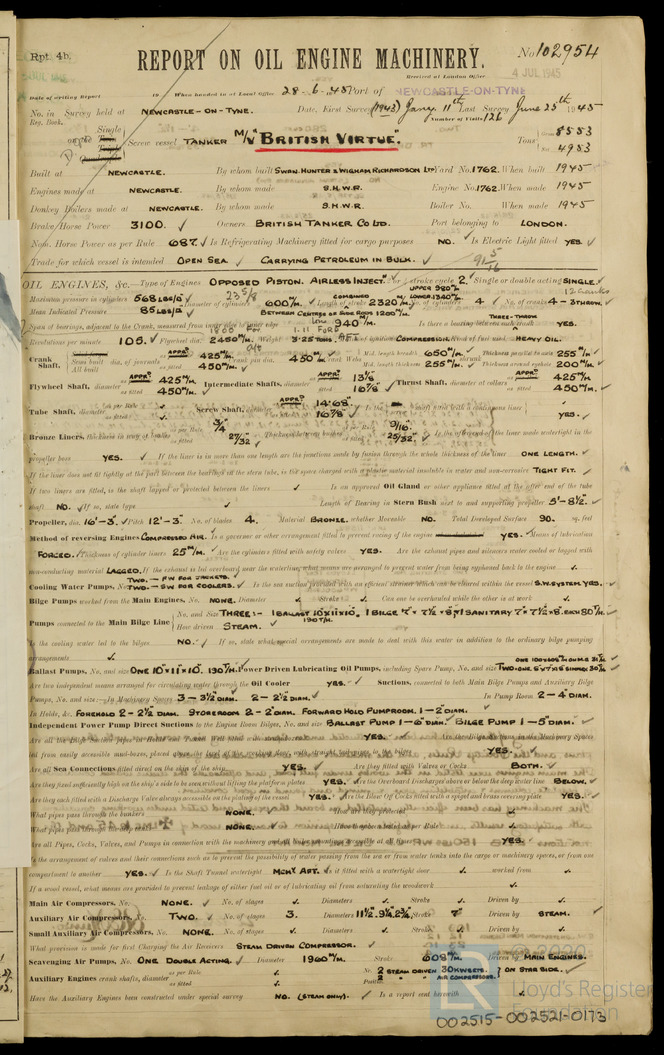 Rpt. 4b.
REPORT ON OIL ENGINE MACHINERY.
No 102954
Received at London Office
4 JUL 1945
Date of writing Report 19 When handed in at Local Office 28-6-1945 Port of NEWCASTLE-ON-TYNE
No. in Reg. Book. Survey held at NEWCASTLE-ON-TYNE. Date, First Survey (1943) Jany. 11th Last Survey June 25th 1945
Number of Visits 126
Single
Screw vessel TANKER M/V "BRITISH VIRTUE". Tons 8553 4983
Built at NEWCASTLE. By whom built SWAN, HUNTER & WIGHAM RICHARDSON LTD Yard No. 1762. When built 1945
Engines made at NEWCASTLE. By whom made S.H.W.R. Engine No. 1762. When made 1945
Donkey Boilers made at NEWCASTLE. By whom made S.H.W.R. Boiler No. When made 1945
Brake Horse Power 3100. Owners BRITISH TANKER CO LTD. Port belonging to LONDON.
Nom. Horse Power as per Rule 687. Is Refrigerating Machinery fitted for cargo purposes NO. Is Electric Light fitted YES.
Trade for which vessel is intended OPEN SEA. CARRYING PETROLEUM IN BULK.
OIL ENGINES, &c. Type of Engines OPPOSED PISTON. AIRLESS INJECTN. stroke cycle 2. Single or double acting SINGLE.
Maximum pressure in cylinders 568 LBS/□" Diameter of cylinders 600 M/M. Length of stroke COMBINED 2320 M/M. UPPER 980 M/M LOWER 1340 M/M No. of cylinders 4 No. of cranks 4-3 THROW.
Mean Indicated Pressure 85 LBS/□"
BETWEEN CENTRES OF SIDE RODS 1200 M/M.
Span of bearings, adjacent to the Crank, measured from inner edge to inner edge 940 M/M. Is there a bearing between each THREE-THROW crank YES.
Revolutions per minute 105. Flywheel dia. 2450 M/M. Weight 3.25 TONS. Means of ignition COMPRESSION. Kind of fuel used HEAVY OIL.
Crank Shaft, dia. of journals APPD 425 M/M. as fitted 450 M/M. Crank pin dia. 450 M/M. Mid. length breadth 650 M/M. Thickness parallel to axis 255 M/M.
Mid. length thickness 255 M/M. Thickness around eyehole 200 M/M.
Flywheel Shaft, diameter APPD 425 M/M. as fitted 450 M/M. Intermediate Shafts, diameter APPD 13 1/8 as fitted 16 7/8 Thrust Shaft, diameter at collars APPD 425 M/M. as fitted 450 M/M.
Tube Shaft, diameter Screw Shaft, diameter APPD 14.68" as fitted 16 7/8 Is the shaft fitted with a continuous liner YES.
Bronze Liners, thickness in way of bushes 3/4 as fitted 27/32 Thickness between bushes 9/16 as fitted 25/32. Is the after end of the liner made watertight in the
propeller boss YES. If the liner is in more than one length are the junctions made by fusion through the whole thickness of the liner ONE LENGTH.
If the liner does not fit tightly at the part between the bearings in the stern tube, is the space charged with a plastic material insoluble in water and non-corrosive TIGHT FIT.
If two liners are fitted, is the shaft lapped or protected between the liners Is an approved Oil Gland or other appliance fitted at the after end of the tube
shaft NO. If so, state type Length of Bearing in Stern Bush next to and supporting propeller 5'-8½".
Propeller, dia. 16'-3". Pitch 12'-3". No. of blades 4. Material BRONZE. whether Moveable NO. Total Developed Surface 90. sq. feet
Method of reversing Engines COMPRESSED AIR. Is a governor or other arrangement fitted to prevent racing of the engine YES. Means of lubrication
FORCED. Thickness of cylinder liners 25 M/M. Are the cylinders fitted with safety valves YES. Are the exhaust pipes and silencers water cooled or lagged with
non-conducting material LAGGED. If the exhaust is led overboard near the waterline, what means are arranged to prevent water being syphoned back to the engine
Cooling Water Pumps, No. TWO.-FW FOR JACKETS. TWO-SW FOR COOLERS. Is the sea suction provided with an efficient strainer which can be cleared within the vessel S.W. SYSTEM YES.
Bilge Pumps worked from the Main Engines, No. NONE. Diameter Stroke Can one be overhauled while the other is at work
Pumps connected to the Main Bilge Line No. and Size THREE:- 1 BALLAST 10"x11"x10". 1 BILGE 7" x 7½" x 8". 1 SANITARY 7" x 7½" x 8". EACH 80 T/HR. 130 T/HR.
How driven STEAM.
Is the cooling water led to the bilges NO. If so, state what special arrangements are made to deal with this water in addition to the ordinary bilge pumping
arrangements
Ballast Pumps, No. and size ONE 10"x11"x10". 130 T/HR. Power Driven Lubricating Oil Pumps, including Spare Pump, No. and size
Are two independent means arranged for circulating water through the Oil Cooler YES. Suctions, connected to both Main Bilge Pumps and Auxiliary Bilge
Pumps, No. and size:-In Machinery Spaces 3-3½" DIAM. 2-2½" DIAM. In Pump Room 2-4" DIAM.
In Holds, &c. FOREHOLD 2-2½" DIAM. STOREROOM 2-2" DIAM. FORWARD HOLD PUMPROOM. 1-2" DIAM.
Independent Power Pump Direct Suctions to the Engine Room Bilges, No. and size BALLAST PUMP 1-6" DIAM. BILGE PUMP 1-5" DIAM.
Are all the Bilge Suction pipes in Holds and Tunnel Well fitted with strum-boxes YES. Are the Bilge Suctions in the Machinery Spaces
led from easily accessible mud-boxes, placed above the level of the working floor, with straight tail pipes to the bilges YES.
Are all Sea Connections fitted direct on the skin of the ship YES. Are they fitted with Valves or Cocks BOTH.
Are they fixed sufficiently high on the ship's side to be seen without lifting the platform plates YES. Are the Overboard Discharges above or below the deep water line BELOW.
Are they each fitted with a Discharge Valve always accessible on the plating of the vessel YES. Are the Blow Off Cocks fitted with a spigot and brass covering plate YES.
What pipes pass through the bunkers NONE. How are they protected
What pipes pass through the deep tanks NONE. Have they been tested as per Rule
Are all Pipes, Cocks, Valves, and Pumps in connection with the machinery and all boiler mountings accessible at all times YES.
Is the arrangement of valves and their connections such as to prevent the possibility of water passing from the sea or from water tanks into the cargo or machinery spaces, or from one
compartment to another YES. Is the Shaft Tunnel watertight MCHY AFT. Is it fitted with a watertight door worked from
If a wood vessel, what means are provided to prevent leakage of either fuel oil or lubricating oil from saturating the woodwork
Main Air Compressors, No. NONE. No. of stages Diameters Stroke Driven by
Auxiliary Air Compressors, No. TWO. No. of stages 3. Diameters 11½" 9¾" 2¾" Stroke 7" Driven by STEAM.
Small Auxiliary Air Compressors, No. NONE. No. of stages Diameters Stroke Driven by
What provision is made for first Charging the Air Receivers STEAM DRIVEN COMPRESSOR.
Scavenging Air Pumps, No. ONE DOUBLE ACTING. Diameter 1960 M/M. Stroke 608 M/M. Driven by MAIN ENGINES.
Auxiliary Engines crank shafts, diameter as per Rule as fitted No. 2 STEAM DRIVEN 30KW SETS. 2 " " AIR COMPRESSORS. ON STAR SIDE.
Have the Auxiliary Engines been constructed under special survey NO. (STEAM ONLY). Is a report sent herewith
© 2020
Lloyd's Register
Foundation
002515-002521-0173